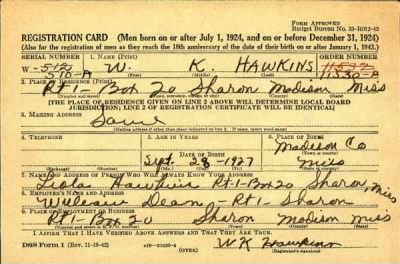 Form Approved
Budget Bureau No. 33-R012-43
REGISTRATION CARD (Men born on or after July 1, 1924, and on or before December 31, 1924)
(Also for the registration of men as they reach the 18th anniversary of the date of their birth on or after January 1, 1943.)
SERIAL NUMBER 1. NAME (Print) ORDER NUMBER
W- 512 W. K. HAWKINS 11572
510-A (First) (Middle) (Last) 11530-A
2. PLACE OF RESIDENCE (Print)
Rt1- Box 20 Sharon Madison Miss
(Number and street) (Town, township, village, or city) (County) (State)
[THE PLACE OF RESIDENCE GIVEN ON LINE 2 ABOVE WILL DETERMINE LOCAL BOARD
JURISDICTION; LINE 2 OF REGISTRATION CERTIFICATE WILL BE IDENTICAL]
3. MAILING ADDRESS
Same
[Mailing address if other than place indicated on line 2. If same, insert word same]
4. TELEPHONE 5. AGE IN YEARS 6. PLACE OF BIRTH
Madison Co
DATE OF BIRTH (Town or county)
Sept. 28 - 1927 Miss
(Exchange) (Number) (Mo.) (Day) (Yr.) (State or country)
7. NAME AND ADDRESS OF PERSON WHO WILL ALWAYS KNOW YOUR ADDRESS
Hawkins Rt.1-Box 20 Sharon, Miss
8. EMPLOYER'S NAME AND ADDRESS
William Dean - Rt1- Sharon
9. PLACE OF EMPLOYMENT OR BUSINESS
Rt1- Box 20 Sharon Madison Miss
(Number and street or R. F. D. number) (Town) (County) (State)
I AFFIRM THAT I HAVE VERIFIED ABOVE ANSWERS AND THAT THEY ARE TRUE.
DSS Form 1 (Rev. 11-16-42) (OVER) WK Hawkins
(Registrant's signature)